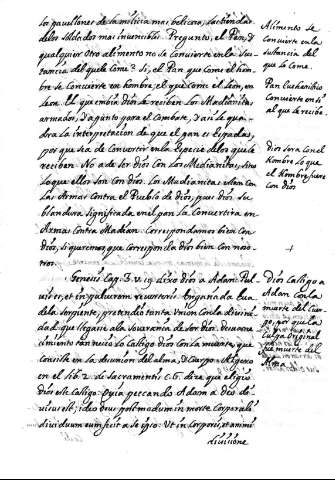 los pavellones de la milicia mas belicosa, las tiendas
delos soldados mas invencibles. Pregunto, el Pan, o
qualquier otro alimento no se Convierte en la Sus-
tancia del que le Come? Si, el Pan que come el hom-
bre se Convierte en hombre, el que come el león, en
leon. El que embia dios, le reciben los Madianitas
armados, y a punto para el Combate, y asi le qua-
dra la interpretacion de que el pan es Espadas,
pues que sea de Convertir en la Especie delos que le
reciben. No a de ser dios con los Medianitas, sino
lo que ellos son con Dios. Los Madianitas estan Con
las Armas Contra el Pueblo de dios, pues dios su
blandura significada en el pan la Convertira en
Arma Contra Madian. Correspondamos bien Con
dios, si queremos que corresponda dios bien con noso-
tros.
Genesis Cap. 3. v. 19. Dixo dios a Adam: Pul-
vis es, et in pulverem reverteris. Enganada Eva
dela serpiente, pretendio tanta Union Con la divini-
dad que llegase a la soverania de ser dios. De su atre-
vimiento necio lo Castigo dios Con la muerte, que
consiste en la desunion del alma, y Cuerpo. Algero
en el Lib. 2. de Sacramentis C. 6. dize que eligio
dios este Castigo: Quia peccando Adam a Deo de-
viderunt: ideo Deus postmodum in morte Corporali
dividuum eum fecit a se ipso: Ut in corporis, et animi
divisione
Alimento se
Convierte en la
sustancia del
que lo Come.
Pan Eucharistico
Convierte en si
al que le recibe.
Dios sera con el
hombre lo que
el hombre fuere
con Dios
+
Dios Castigo a
Adam Con la
muerte del Cuer-
po, por que la
Culpa Original
fue muerte del
Alma.